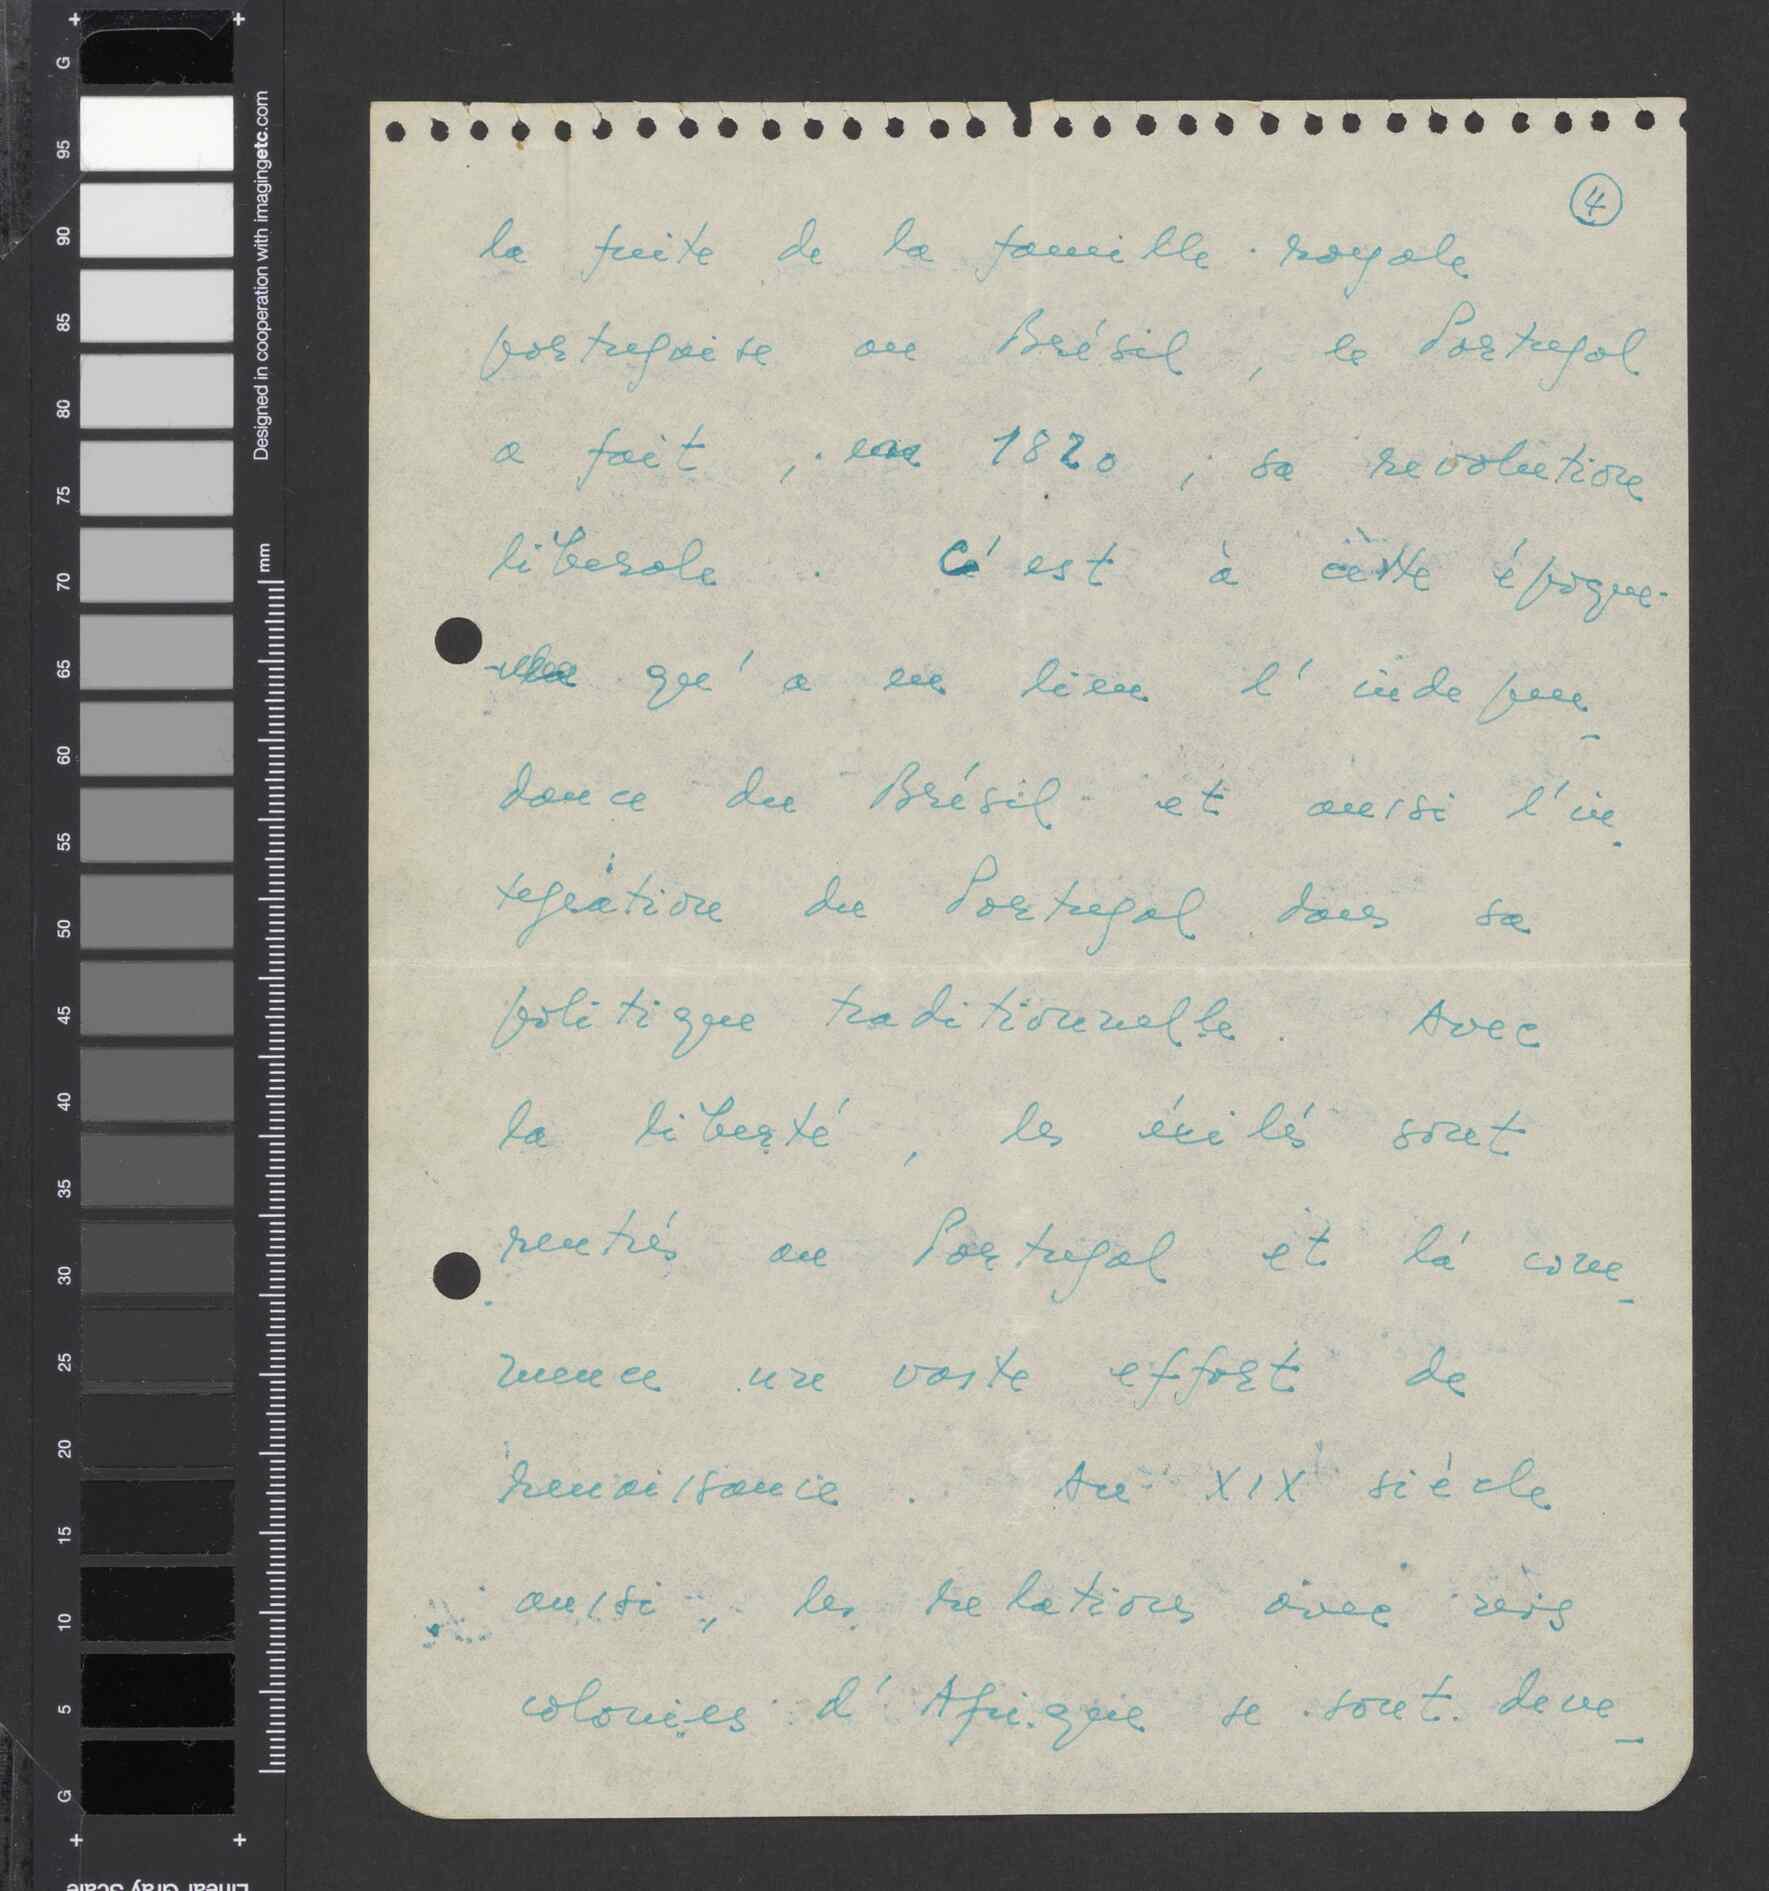 4
la fuite de la famille royale
portugaise au Brésil, le Portugal
a fait, en 1820, sa revolution
liberale. C'est à cette époque-
-la qu'a eu lieu l'indepen-
dance du Brésil et aussi l'in-
tegration du Portugal dans sa
politique traditionnelle. Avec
la liberté, les éxilés sont
rentrés au Portugal et là com-
mence un vaste effort de
renaissance. Au XIX siècle
aussi, les relations avec nos
colonies d'Afrique se sont deve-
G
95
90
85
80
75
70
65
60
55
50
45
40
35
30
25
20
15
10
5
G
Designed in cooperation with imagingetc.com
mm
Linear Gray Scale